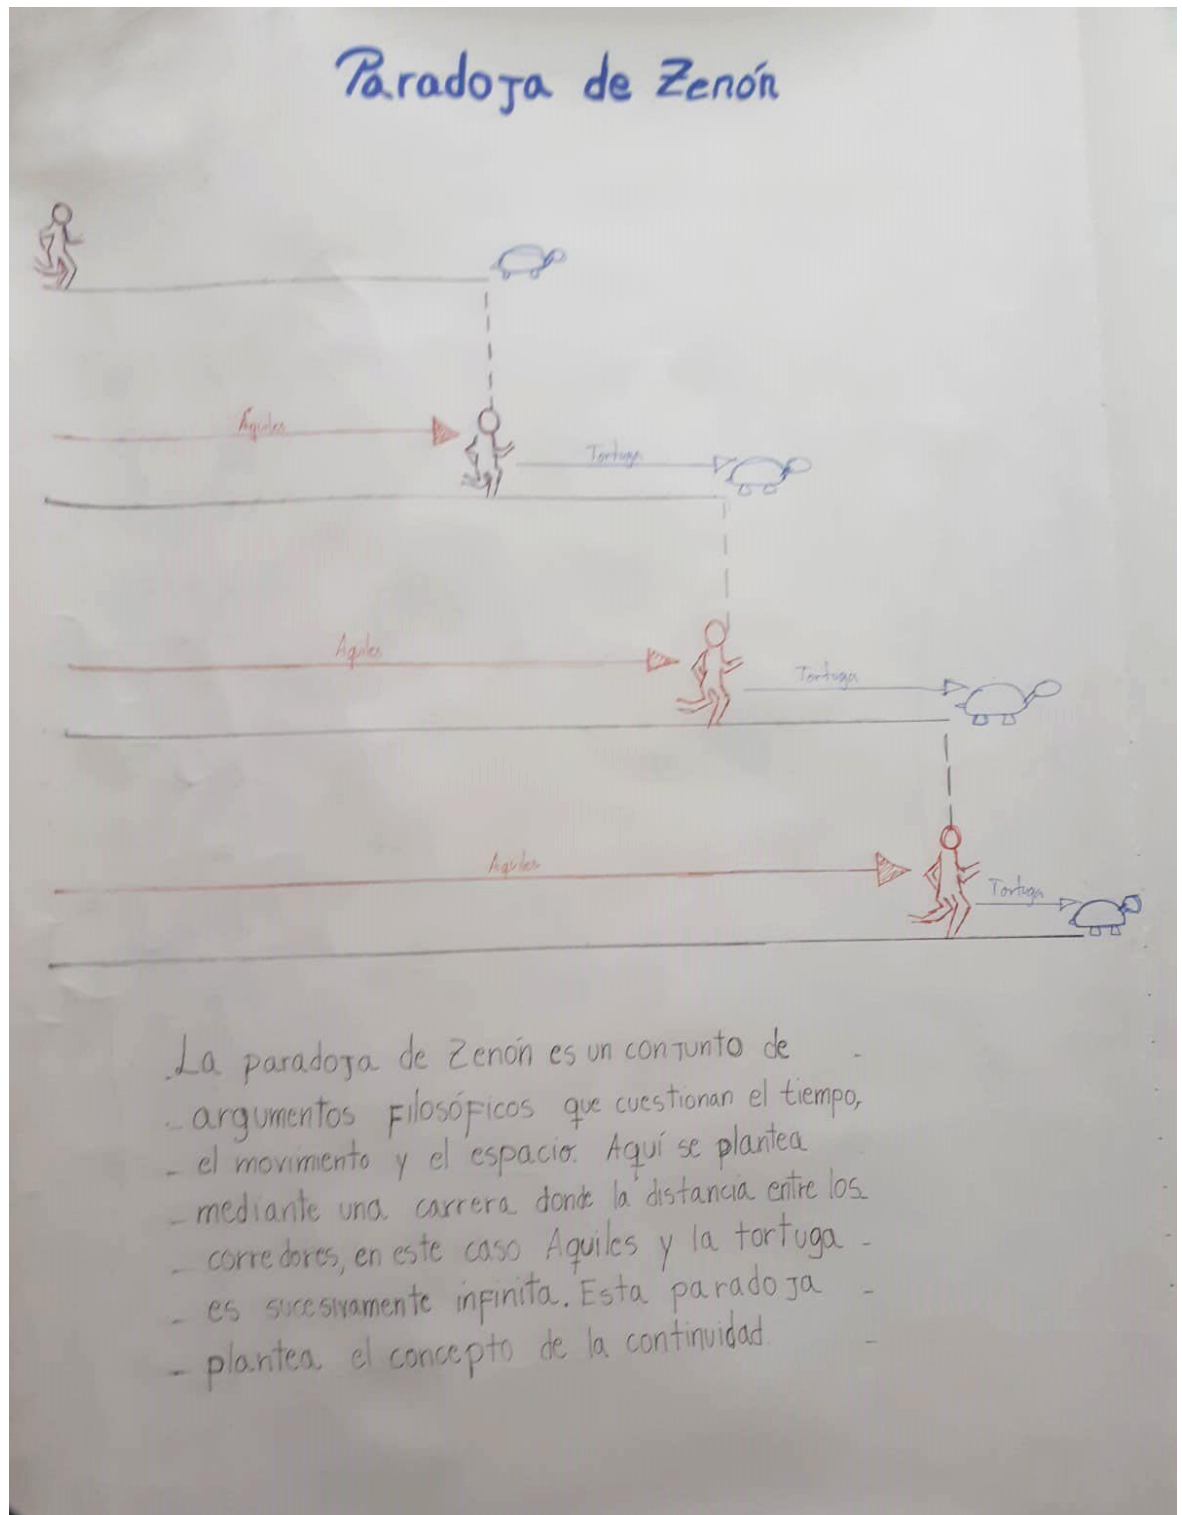 Paradoja de Zenón
Aquiles
Tortuga
Aquiles
Tortuga
Aquiles
Tortuga
La paradoja de Zenón es un conjunto de
argumentos Filosóficos que cuestionan el tiempo,
el movimiento y el espacio. Aquí se plantea
mediante una carrera donde la distancia entre los
corredores, en este caso Aquiles y la tortuga
es sucesivamente infinita. Esta paradoja
plantea el concepto de la continuidad